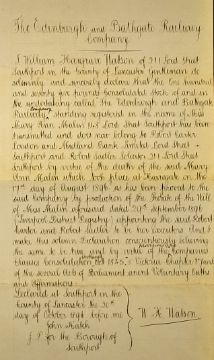 The Edinburgh and Bathgate Railway
Company.
I William Hargrave Watson of 21 Lord Street
Southport in the County of Lancaster Gentleman do
solemnly and sincerely declare that the One hundred
and seventy five pounds Consolidated Stock of and in
the undertaking called The Edinburgh and Bathgate
Railway Company standing registered in the name of Miss
Mary Ann Malin of Lord Street Southport has been
transmitted and does now belong to
London and Midland Bank Limited Lord Street
Southport and Robert Sadler of 21 Lord Street
Southport by virtue of the death of the said Mary
Ann Malin which took place at Harrogate on the
17th day of August 1896 as has been proved to the
said Company by production of the Probate of the Will
of Miss Malin aforesaid dated 29th September 1896
Liverpool District Registry appointing the said Robert
and Robert Sadler to be her Executors And I
make this solemn Declaration conscientiously believing
the same to be true and by virtue of the Companies
Clauses Consolidation Act 1845, Victoria Chapter 17 and
of the several Acts of Parliament anent Voluntary Oaths
and Affirmations.
Declared at Southport in the
County of Lancaster the
day of October 1896 before me
John
J P for the Borough of
Southport
W H Watson